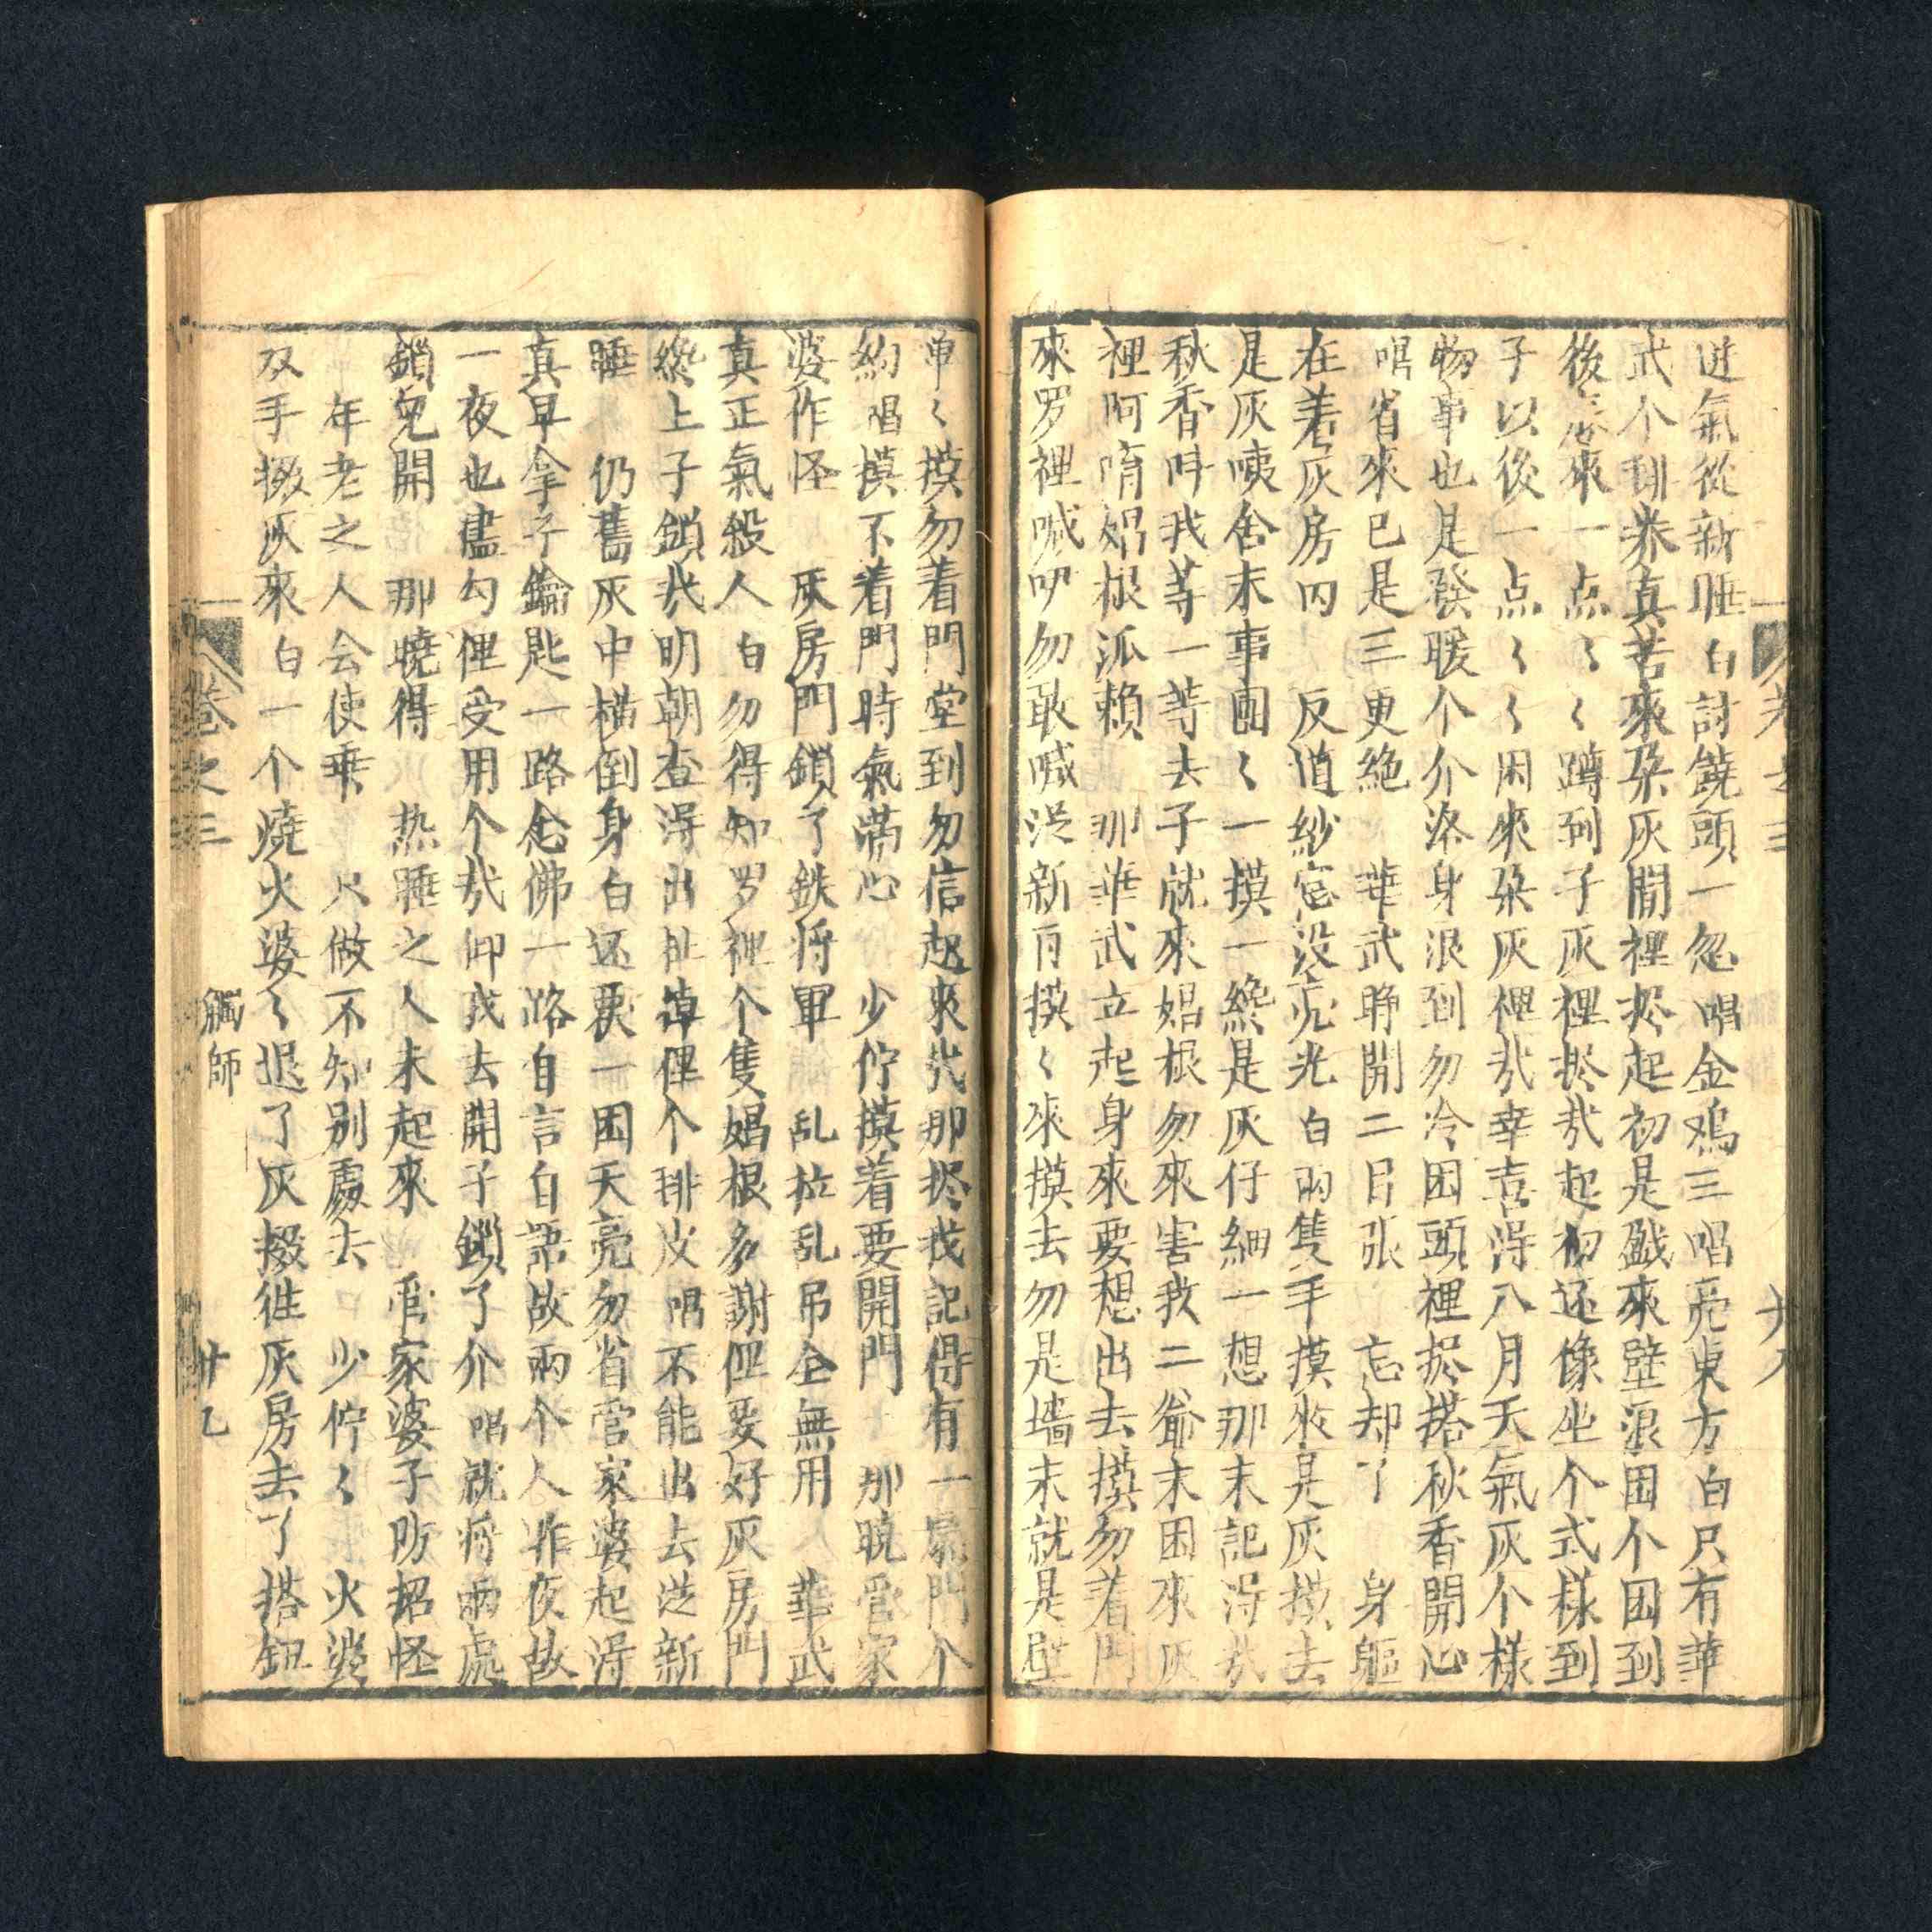 進氣從新睡白討饒頭一忽唱金鳮三唱亮東方白只有華
武个誹养真苦來朶灰閒裡捴起初是戤來壁浪困个困到
後來一点〻〻蹲到子灰裡捴㢤起初还像坐个式樣到
子以後一点〻〻困來朶灰裡㢤幸喜淂八月天氣灰个樣
物事也是發暖个介滁身浪到勿冷困頭裡捴搭秋香開心
唱省來已是三更絶　華武睁開二目張　忘却了　身軀
在着灰房内　反道紗窓没亮光白兩隻手摸來是灰摸去
是灰咦舍末事團〻一摸一纔是灰仔細一想那末記淂㢤
秋香呌我等一等去子就來娼根勿來害我二爺末困來灰
裡阿唷娼根派賴　那華武立起身來要想出去摸勿着門
來罗裡喊吚勿敢喊從新百摸〻來摸去勿是墻末就是壁
单〻摸勿着門堂到勿信起來㢤那捴我記得有一扇門个
約唱摸不着門時氣滿心　少佇摸着要開門　那曉管家
婆作怪　灰房門鎖了鉄将軍　乱拉乱吊全無用　華武
真正氣殺人白勿得知罗裡个隻娼根多謝俚要好灰房門
纔上子鎖㢤明朝查淂出扯掉俚个排皮唱不能出去從新
睡　仍舊灰中横倒身白还要一困天亮勿省管家婆起淂
真早拿子鑰匙一路念佛一路自言自語故兩个人昨夜故
一夜也儘勾俚受用个㢤仰我去開子鎖了介唱就將兩處
鎖免開　那曉得　热睡之人未起來　管家婆子昉招怪
年老之人会使乖　只做不知别處去　少佇〻火婆
双手掇灰來白一个燒火婆〻退了灰掇徃灰房去了搭鈕
卷之三　　觸師　　廿乙